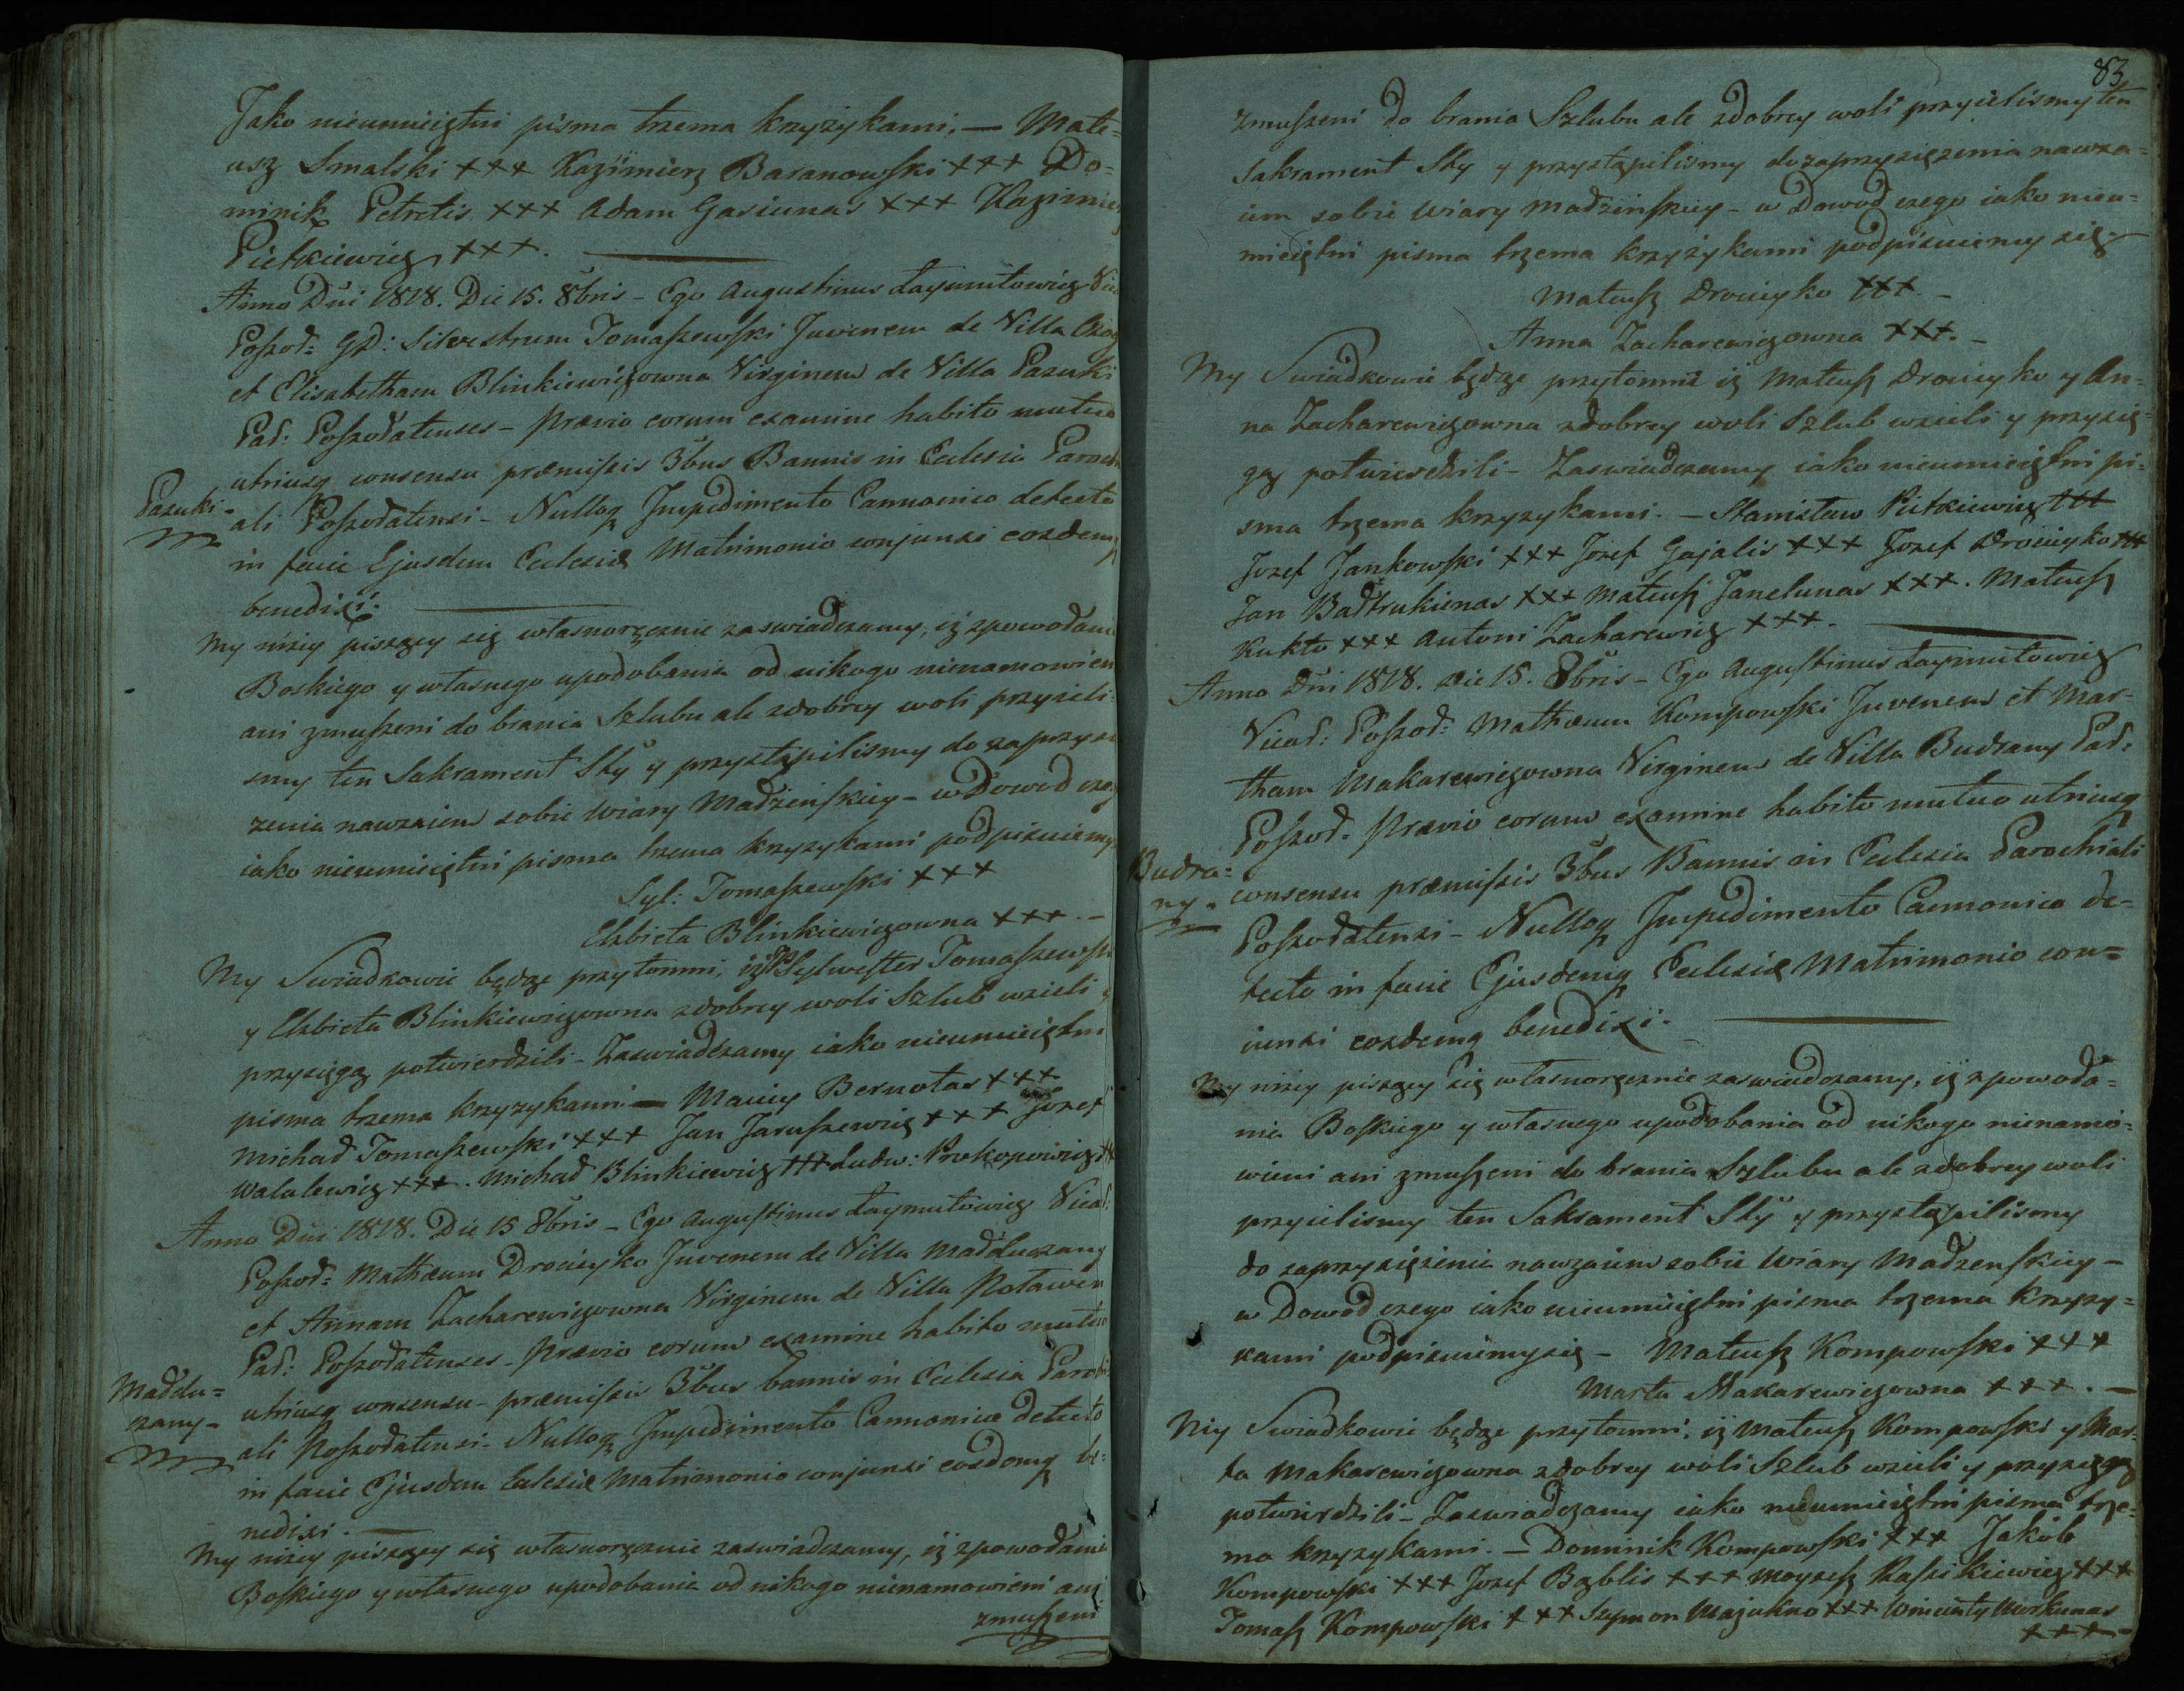 Jako nieumieiętni pisma trzema krzyżykami, — Mate=
usz Smalski +++ Kazimierz Baranowski +++ Do=
minik Petretis +++ Adam Gasiunas +++ Kazimierz
Pietkiewicz +++.
Anno Dni 1818. Die 15. 8bris – Ego Augustinus Łaymutowicz
Poszod: GD: Silvestrum Tomaszewski Juvenem de Villa
et Elisabetham Blinkiewiczowna Virginem de Villa Pazuki
Par: Poszodatenses – Prævio eorum examine habito mutuo
utriusq consensu præmissis 3bus Bannis in Eclesia Parochi
Pazuki –
ali Poszodatensi – Nulloq Jmpedimento Cannonico detecto
in facie Ejusdem Eclesiæ Matrimonio conjunxi eosdemq
benedixi.
My niżey piszący się własnoręcznie zaswiadczamy, iż zpowołania
Boskiego y własnego upodobania od nikogo nienamowieni
ani zmuszeni do brania Szlubu ale zdobrey woli przyieli=
smy ten Sakrament Sty y przystąpilismy do zaprzysi
zenia nawzaiem sobie Wiary Madżeńskiey – w Dowod czeg
iako nieumieiętni pisma trzema krzyzykami podpisuiemy
Syl: Tomaszewski +++
Elzbieta Blinkiewiczowna +++. –
My Swiadkowie będąc przytomni, iż Sylwester Tomaszewski
y Elzbieta Blinkiewiczowna zdobrey woli Szlub wzieli y
przysięgą potwierdzili – Zaswiadczamy iako nieumieiętni
pisma trzema krzyzykami — Maciey Bernotas +++
Michad Tomaszewski +++ Jan Jaruszewicz +++ Jozef
Walulewicz +++. Michad Blinkiewicz +++ Ludw: Prokopowicz ++
Anno Dni 1818. Die 15 8bris – Ego Augustinus Łaymutowicz Vicad:
Poszod= Mathæum Drocieyko Juvenem de Villa Madduczany
et Annam Zacharewiczowna Virginem de Villa
Par: Poszodatenses – Prævio eorum examine habito mutuo
Maddu=
utriusq consensu – præmissis 3bus bannis in Eclesia Parochi
czany –
ali Poszodatensi – Nulloq Jmpedimento Cannonico detecto
in facie Ejusdem Eclesiæ Matrimonio conjunxi eosdemq be=
nedixi. —
My niżey piszący się własnoręcznie zaswiadczamy, iż zpowołania
Boskiego y własnego upodobania od nikogo nienamowieni ani
zmuszeni
83
zmuszeni do brania Szlubu ale zdobrey woli przyielismy ten
Sakrament Sty y przystąpilismy do zaprzysięzenia nawza=
iem sobie Wiary Madzeńskiey – w Dowod czego iako nieu=
mieiętni pisma trzema krzyżykami podpisuiemy się –
Mateusz Drocieyko +++. –
Anna Zacharewiczowna +++. –
My Swiadkowie będąc przytomni iż Mateusz Drocieyko y An=
na Zacharewiczowna zdobrey woli Szlub wzieli y przysię=
gą potwierdzili – Zaswiadczamy iako nieumieiętni pi=
sma trzema krzyzykami. – Stanisław Pietkiewicz +++
Jozef Jankowski +++ Jozef Gajalis +++ Jozef Drocieyko +++
Jan Badtrukienas +++ Mateusz Janelunas +++. Mateusz
Kukto +++ Antoni Zacharewicz +++.
Anno Dni 1818. Die 15. 8bris – Ego Augustinus Łaymutowicz
Vicad: Poszod: Mathæum Kompowski Juvenem et Mar=
tham Makarewiczowna Virginem de Villa Budrany Par:
Poszod. Prævio eorum examine habito mutuo utriusq
Budra=
consensu præmissis 3bus Bannis in Eclesia Parochiali
ny –
Poszodatensi – Nulloq Jmpedimento Cannonico de=
tecto in facie Ejusdemq Eclesiæ Matrimonio con=
iunxi eosdemq benedixi. –
My niżey piszący się własnoręcznie zaswiadczamy, iż zpowoła=
nia Boskiego y własnego upodobania od nikogo nienamo=
wieni ani zmuszeni do brania Szlubu ale zdobrey woli
przyielismy ten Sakrament Sty y przystąpilismy
do zaprzysięzenia nawzaiem sobie Wiary Madzenskiey –
w Dowod czego iako nieumieiętni pisma trzema krzyzy=
kami podpisuiemy się – Mateusz Kompowski +++
Marta Makarewiczowna +++. —
My Swiadkowie będąc przytomni, iż Mateusz Kompowski y Mar=
ta Makarewiczowna zdobrey woli Szlub wzieli y przysięgą
potwierdzili – Zaswiadczamy iako nieumieiętni pisma trze=
ma krzyzykami. – Dominik Kompowski +++ Jakób
Kompowski +++ Jozef Bąblis +++ Moyzesz Raszkiewicz +++
Tomasz Kompowski +++ Szymon Mazukno +++ Wincenty Morkunas
+++ –